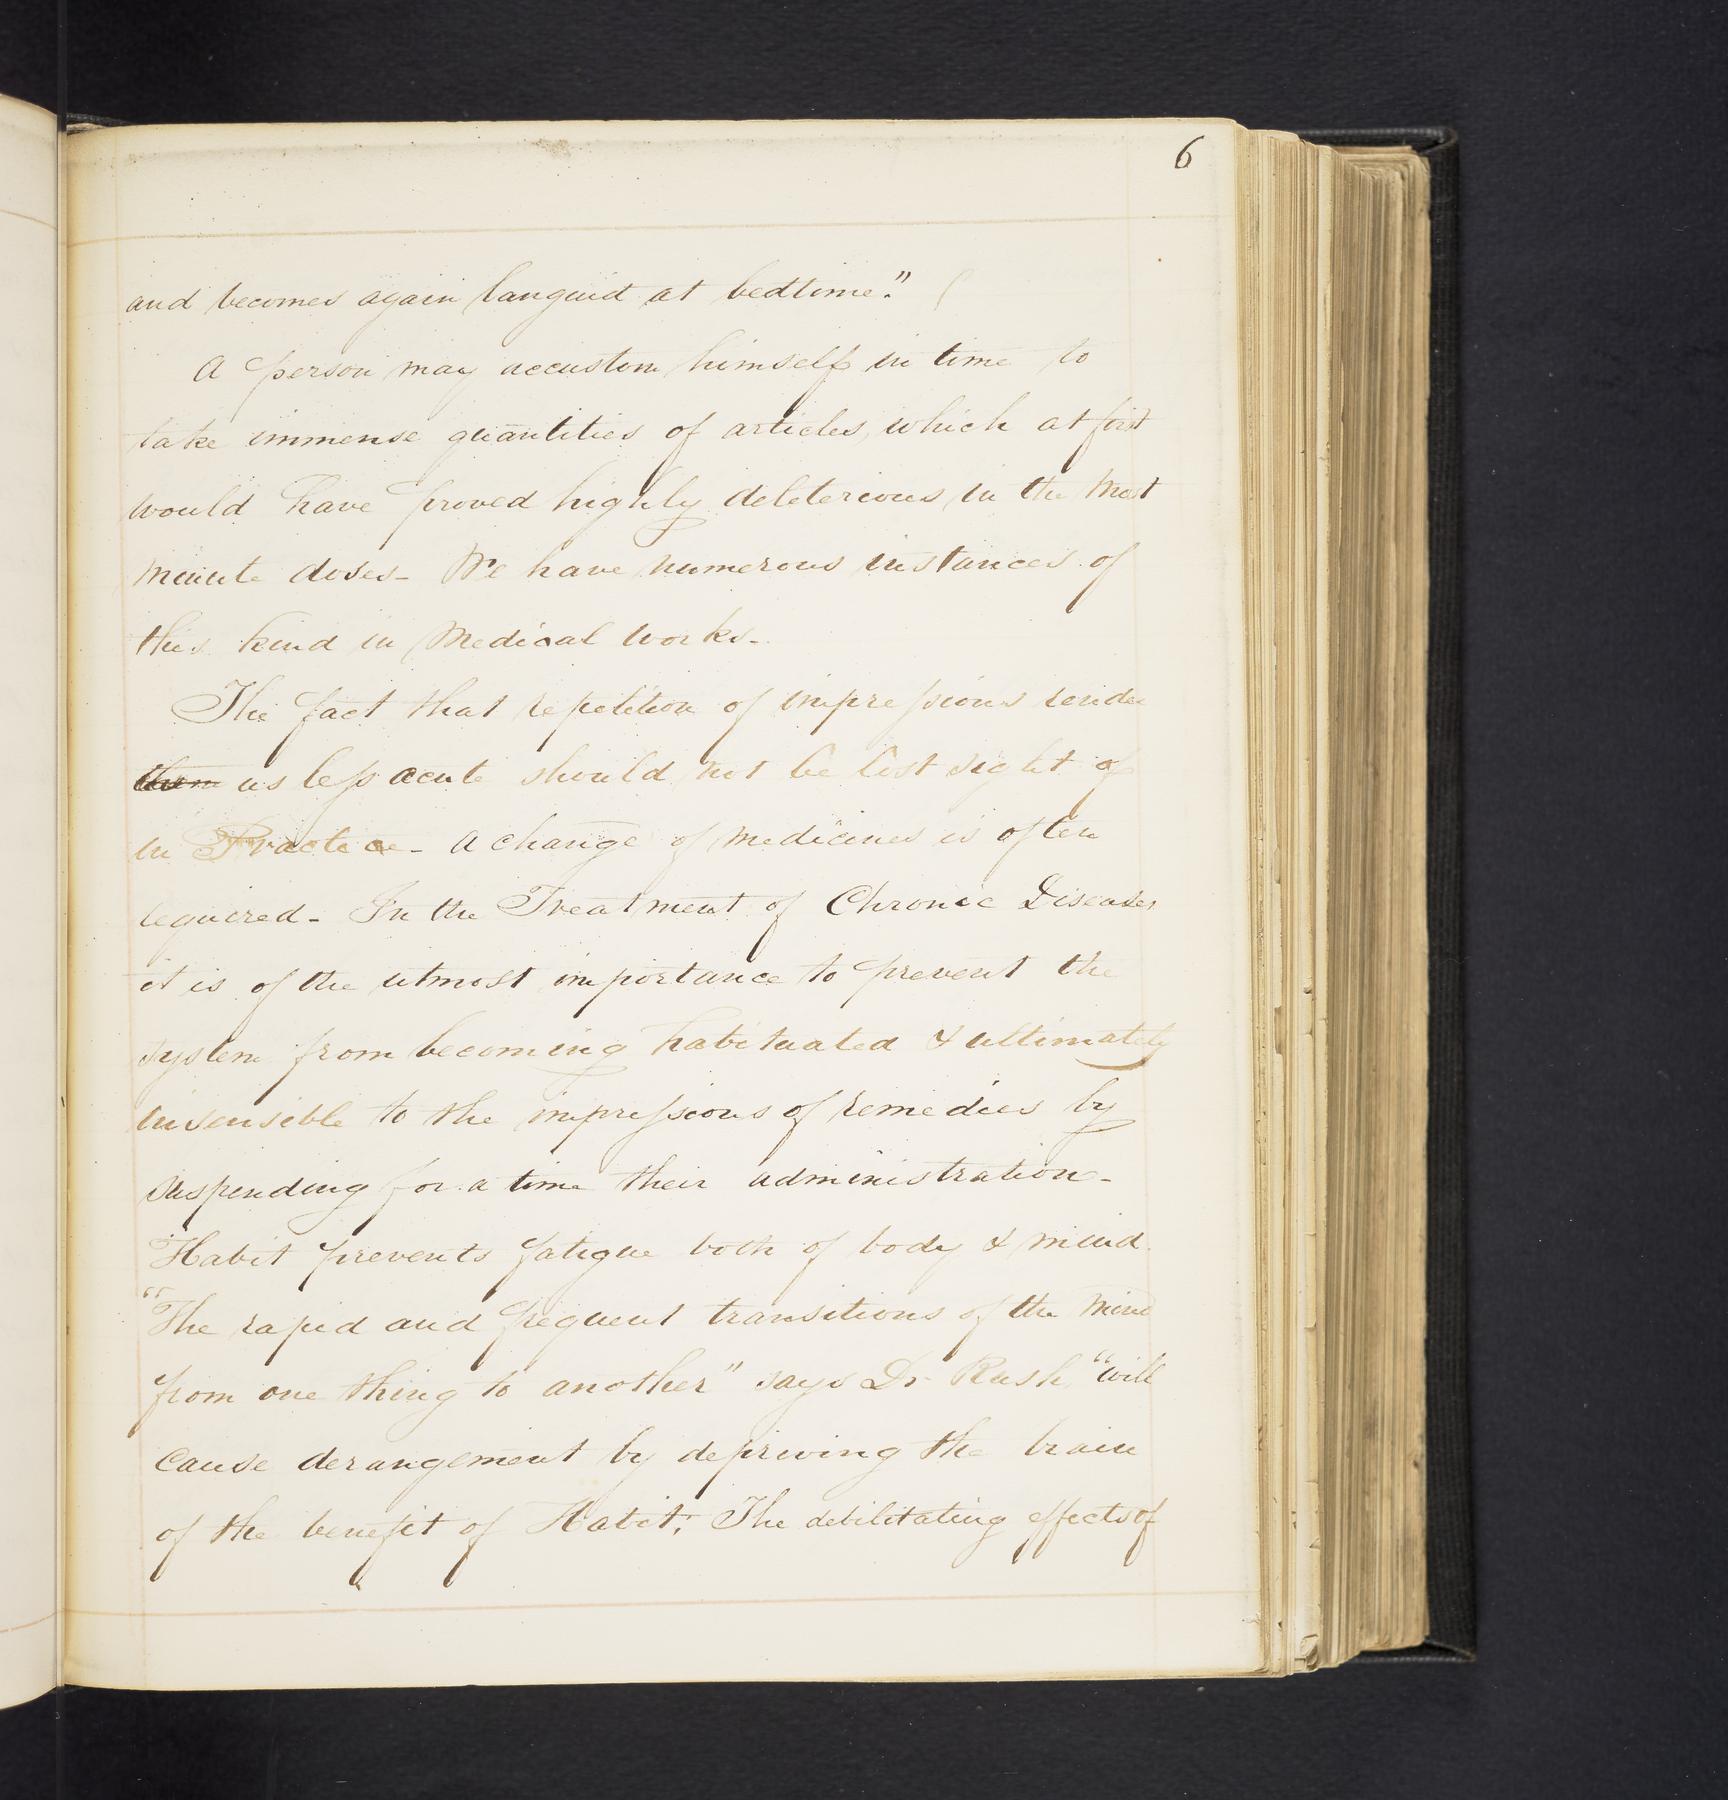 6
and becomes again languid at bedtime."
A person may accustom himself in time to
take immense quantities of articles, which at first
would have proved highly deleterious in the most
minute doses - We have numerous instances of
this kind in Medical works -
The fact that repetition of impressions render
them us less acute should not be lost sight of
in Practice - A change of medicines is often
required - In the Treatment of Chronic Diseases
it is of the utmost importance to prevent the
system from becoming habituated & ultimately
insensible to the impressions of remedies by
suspending for a time their administration -
Habit prevents fatigue both of body & mind.
"The rapid and frequent transitions of the mind
from one thing to another" says Dr Rush, "will
cause derangement by depriving the brain
of the benefit of Habit; The debilitating effects of